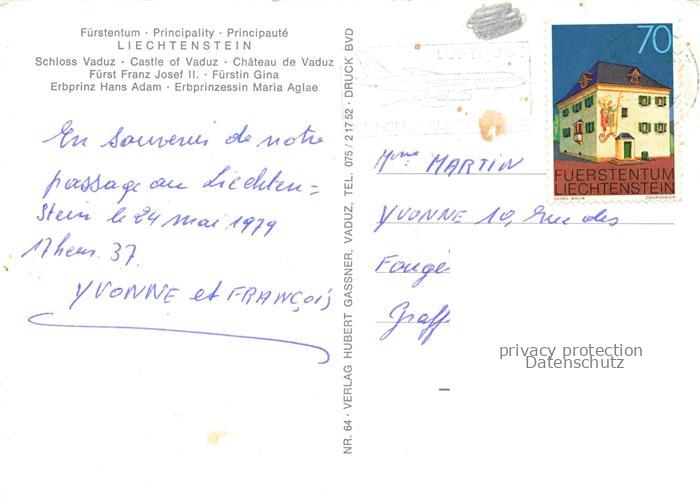 Fürstentum · Principality · Principauté
LIECHTENSTEIN
Schloss Vaduz · Castle of Vaduz · Château de Vaduz
Fürst Franz Josef II. · Fürstin Gina
Erbprinz Hans Adam · Erbprinzessin Maria Aglae
En souvenir de notre
passage au Liechten=
stein le 24 mai 1979
17heu. 37.
YVONNE et FRANÇOIS
NR. 64 · VERLAG HUBERT GASSNER, VADUZ, TEL. 075 / 21752 · DRUCK BVD
LUFTPOST
70
FUERSTENTUM
LIECHTENSTEIN
GEORG MALIN COURVOISIER
Mme MARTIN
YVONNE 10, Rue des
Fougè
Graff
privacy protection
Datenschutz